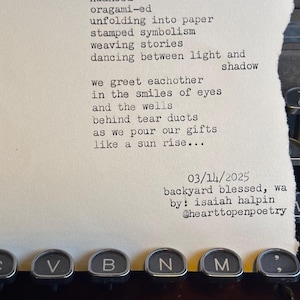 oragami-ed
unfolding into paper
stamped symbolism
weaving stories
dancing between light and
shadow
we greet eachother
in the smiles of eyes
and the wells
behind tear ducts
as we pour our gifts
like a sun rise...
03/14/2025
backyard blessed, wa
by: isaiah halpin
@hearttopenpoetry
V B N M ;